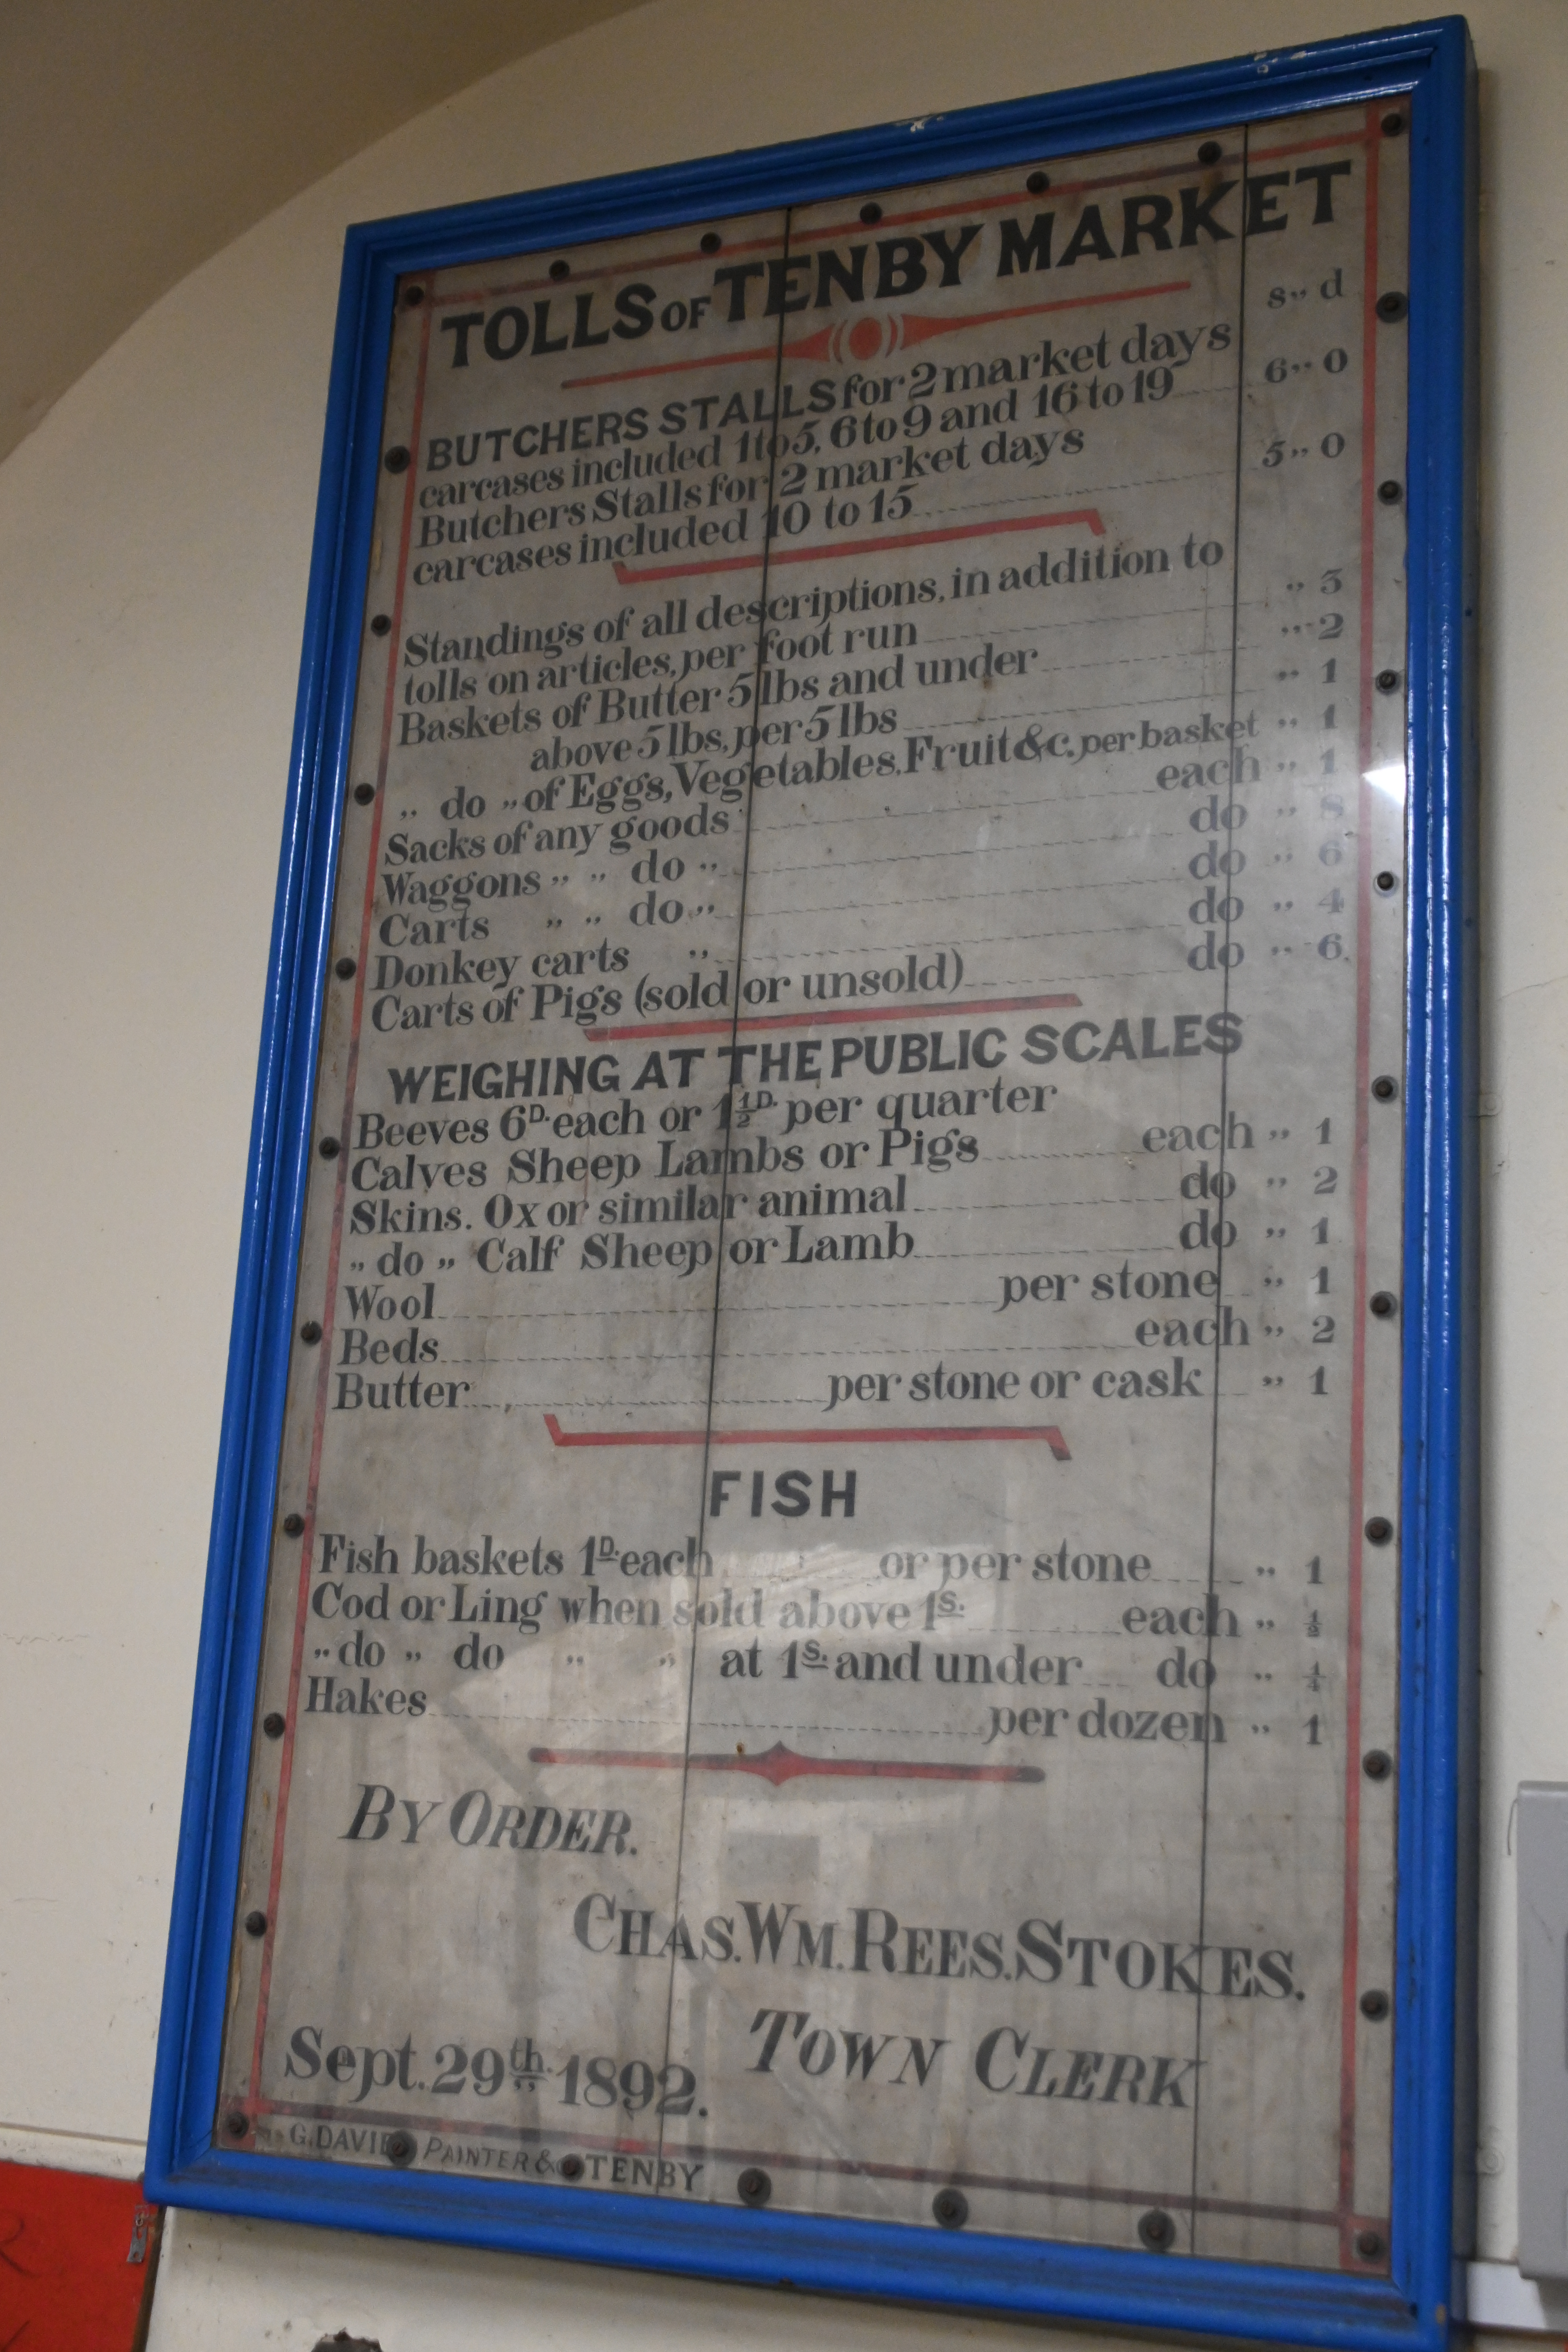 TOLLS OF TENBY MARKET
s" d
BUTCHERS STALLS for 2 market days
carcases included 1 to 5, 6 to 9 and 16 to 19 6" 0
Butchers Stalls for 2 market days
carcases included 10 to 15 5" 0
Standings of all descriptions, in addition to
tolls on articles, per foot run " 3
Baskets of Butter 5 lbs and under " 2
above 5 lbs, per 5 lbs " 1
" do " of Eggs, Vegetables, Fruit &c. per basket " 1
Sacks of any goods each " 1
Waggons " " do " do " 8
Carts " " do " do " 6
Donkey carts " do " 4
Carts of Pigs (sold or unsold) do " 6
WEIGHING AT THE PUBLIC SCALES
Beeves 6D. each or 1½D. per quarter
Calves Sheep Lambs or Pigs each " 1
Skins. Ox or similar animal do " 2
" do " Calf Sheep or Lamb do " 1
Wool per stone " 1
Beds each " 2
Butter per stone or cask " 1
FISH
Fish baskets 1D. each or per stone " 1
Cod or Ling when sold above 1S. each " ½
" do " do " " at 1S. and under do " ¼
Hakes per dozen " 1
BY ORDER.
CHAS. WM. REES. STOKES.
TOWN CLERK
Sept. 29th. 1892.
G. DAVIES PAINTER & TENBY